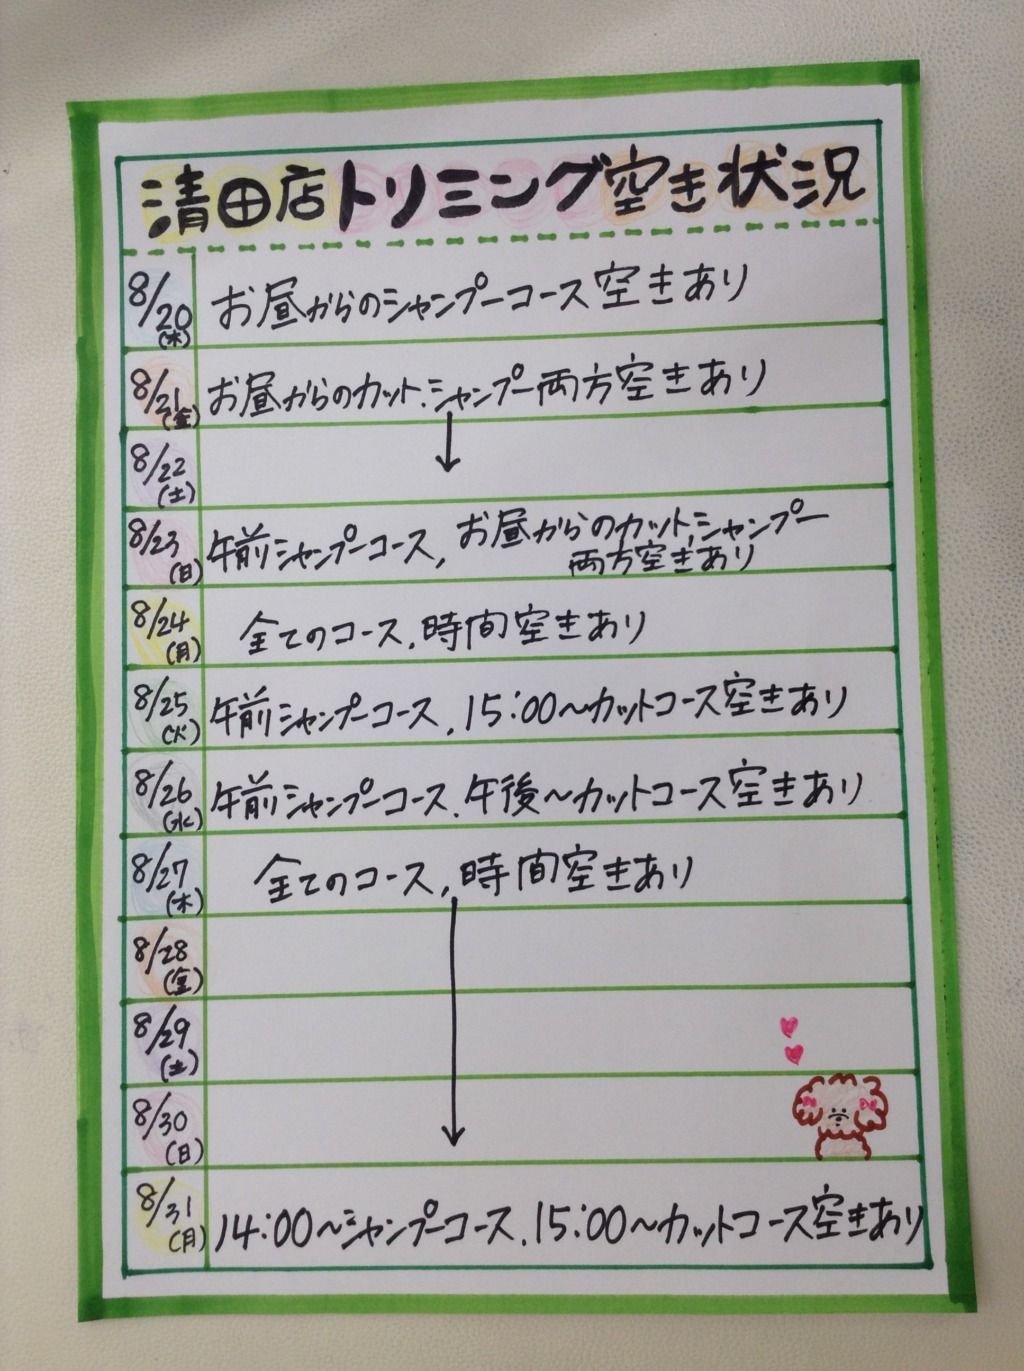 清田店トリミング空き状況
8/20
(木)
お昼からのシャンプーコース空きあり
8/21
(金)
お昼からのカット、シャンプー両方空きあり
8/22
(土)
8/23
(日)
午前シャンプーコース、お昼からのカット、シャンプー
両方空きあり
8/24
(月)
全てのコース、時間空きあり
8/25
(火)
午前シャンプーコース、15:00〜カットコース空きあり
8/26
(水)
午前シャンプーコース、午後〜カットコース空きあり
8/27
(木)
全てのコース、時間空きあり
8/28
(金)
8/29
(土)
8/30
(日)
8/31
(月)
14:00〜シャンプーコース、15:00〜カットコース空きあり